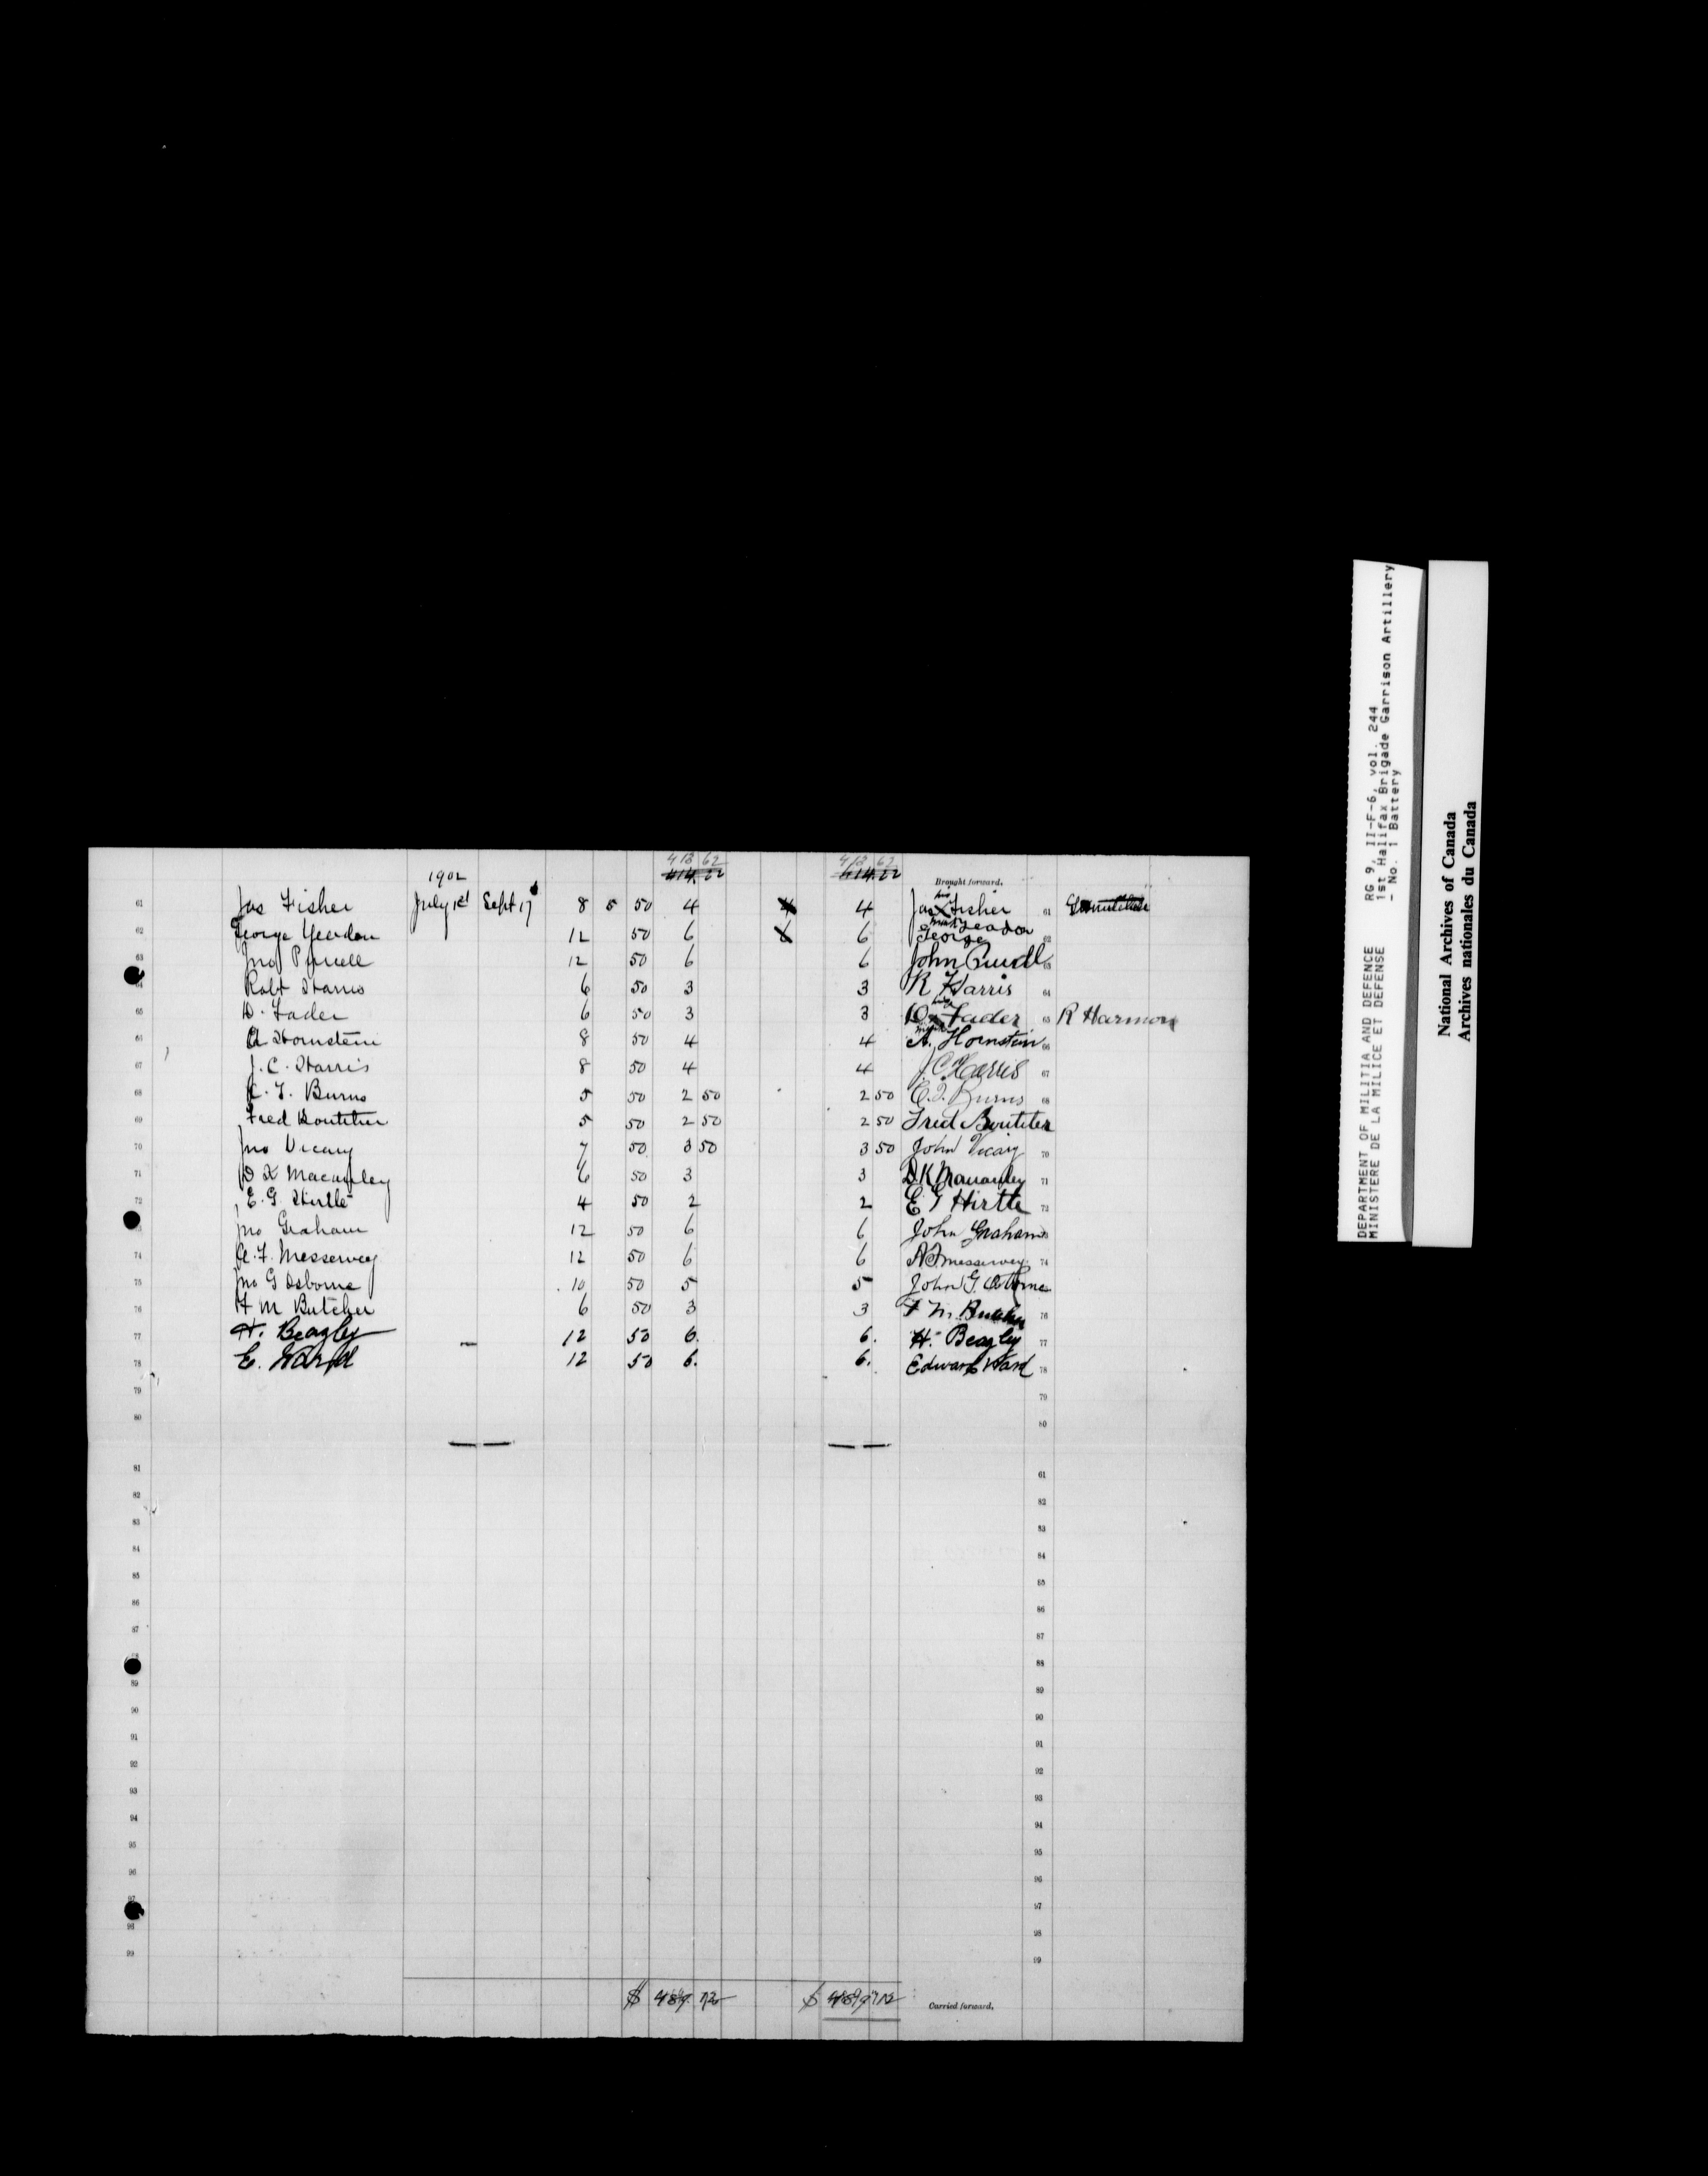 413 62 413 62
1902 414.22 414.22 Brought forward.
61 Jas Fisher July 1st Sept 17 8 5 50 4 4 4 Jas his X mark Fisher 61
62 George Yeadon 12 50 6 6 6 George Yeadon 62
63 Jno Purcell 12 50 6 6 John Purcell 63
64 Robt Harris 6 50 3 3 R Harris 64
65 D. Fader 6 50 3 3 D. his X mark Fader 65 R Harmon
66 A Hornstein 8 50 4 4 A. Hornstein 66
67 J. C. Harris 8 50 4 4 J C Harris 67
68 C. T. Burns 5 50 2 50 2 50 C. T. Burns 68
69 Fred Boutilier 5 50 2 50 2 50 Fred Boutilier
70 Jno Vicary 7 50 3 50 3 50 John Vicary 70
71 D K Macauley 6 50 3 3 D. K Macauley 71
72 E. G. Hirtle 4 50 2 2 E G Hirtle 72
Jno Graham 12 50 6 6 John Graham
74 A. F. Messervey 12 50 6 6 A F Messervey 74
75 Jno G Osborne 10 50 5 5 John G. Osborne
76 F M Butcher 6 50 3 3 F M. Butcher 76
77 H. Beazley 12 50 6. 6. H. Beazley 77
78 E. Ward 12 50 6. 6. Edward Ward 78
79 79
80 80
81 61
82 82
83 83
84 84
85 85
86 86
87 87
88 88
89 89
90 90
91 91
92 92
93 93
94 94
95 95
96 96
97 97
98 98
99 99
$ 489 72 $ 489 72 Carried forward.
DEPARTMENT OF MILITIA AND DEFENCE RG 9, II-F-6, vol. 244
MINISTERE DE LA MILICE ET DEFENSE 1st Halifax Brigade Garrison Artillery
- No. 1 Battery
National Archives of Canada
Archives nationales du Canada